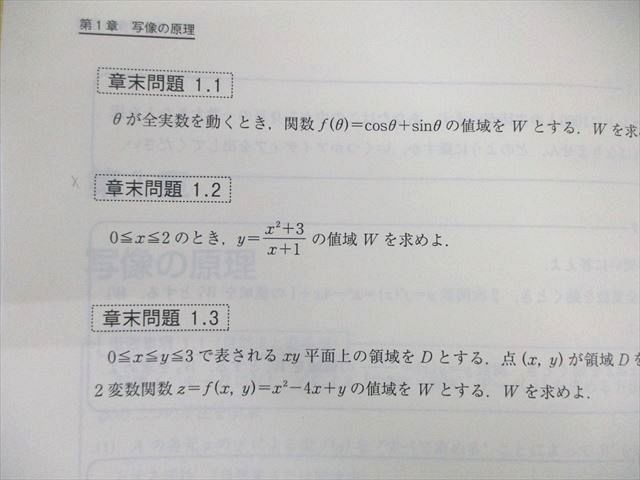 第1章 写像の原理
章末問題 1.1
θが全実数を動くとき，関数 f(θ)=cosθ+sinθ の値域を W とする．W を求
章末問題 1.2
0≦x≦2 のとき，y=(x²+3)/(x+1) の値域 W を求めよ．
章末問題 1.3
0≦x≦y≦3 で表される xy 平面上の領域を D とする．点 (x, y) が領域 D を
2変数関数 z=f(x, y)=x²−4x+y の値域を W とする．W を求めよ．